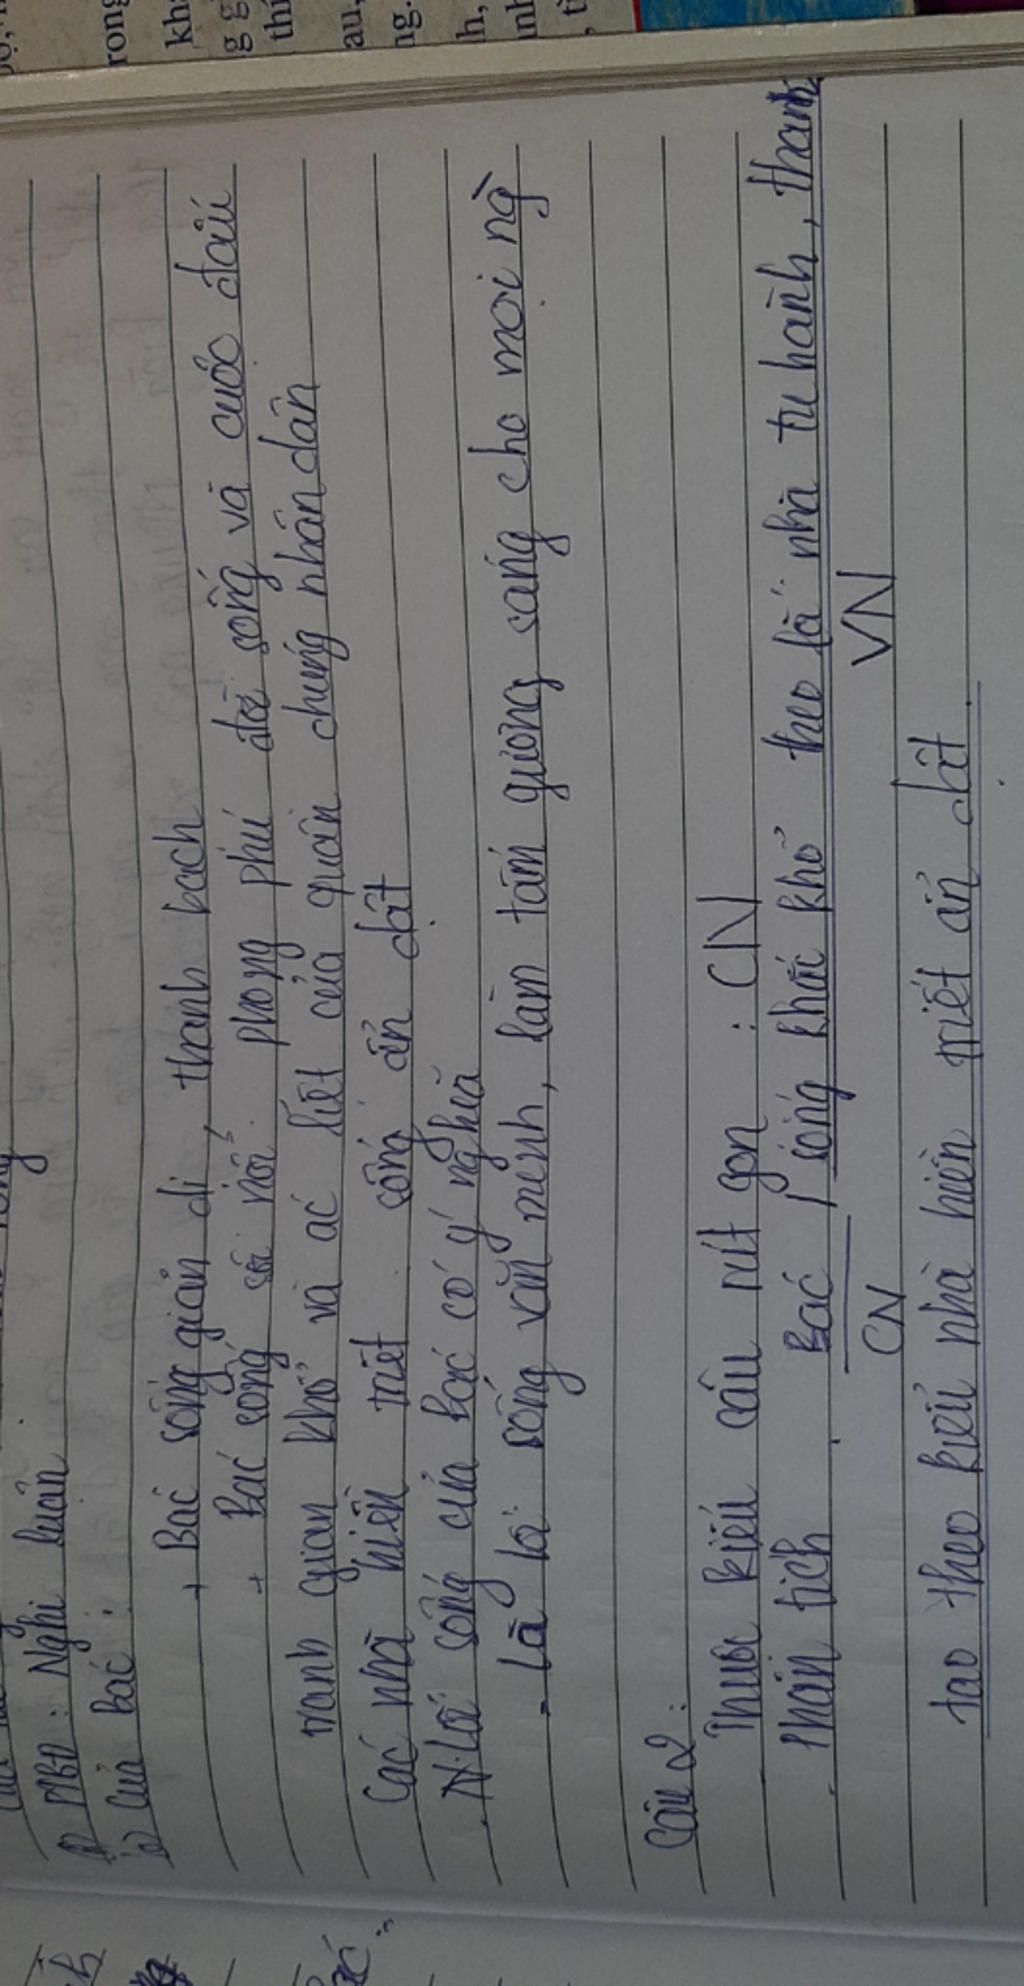 PTBĐ : Nghị luận
của Bác :
+ Bác sống giản dị, thanh bạch
+ Bác sống sôi nổi phong phú đời sống và cuộc đấu
tranh gian khổ và ác liệt của quần chúng nhân dân
Các nhà hiền triết sống ẩn dật
Lối sống của Bác có ý nghĩa
- Là lối sống văn minh, làm tấm gương sáng cho mọi ng
Câu 2 :
Thuộc kiểu câu rút gọn : CN
Phân tích Bác / sống khắc khổ theo là nhà tu hành, thanh
CN VN
tao theo kiểu nhà hiền triết ẩn dật